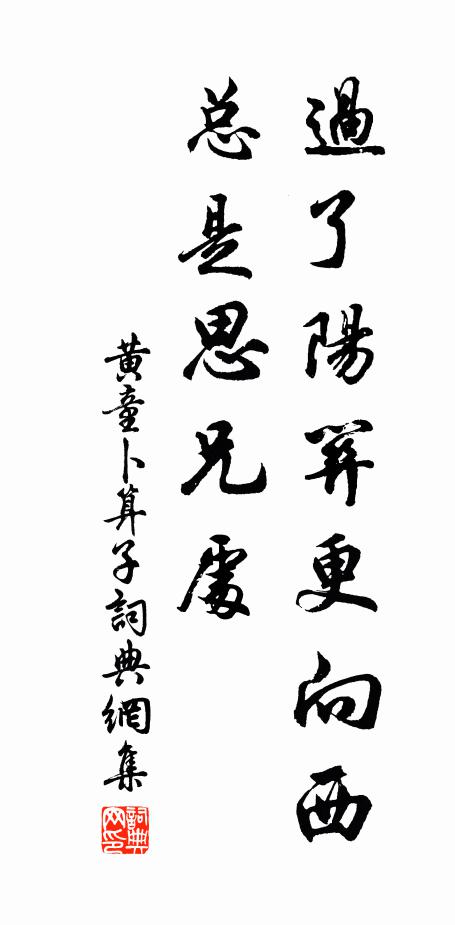 過了陽關更向西
总是思兄處
黄童卜算子詞典網集
詞典
网印